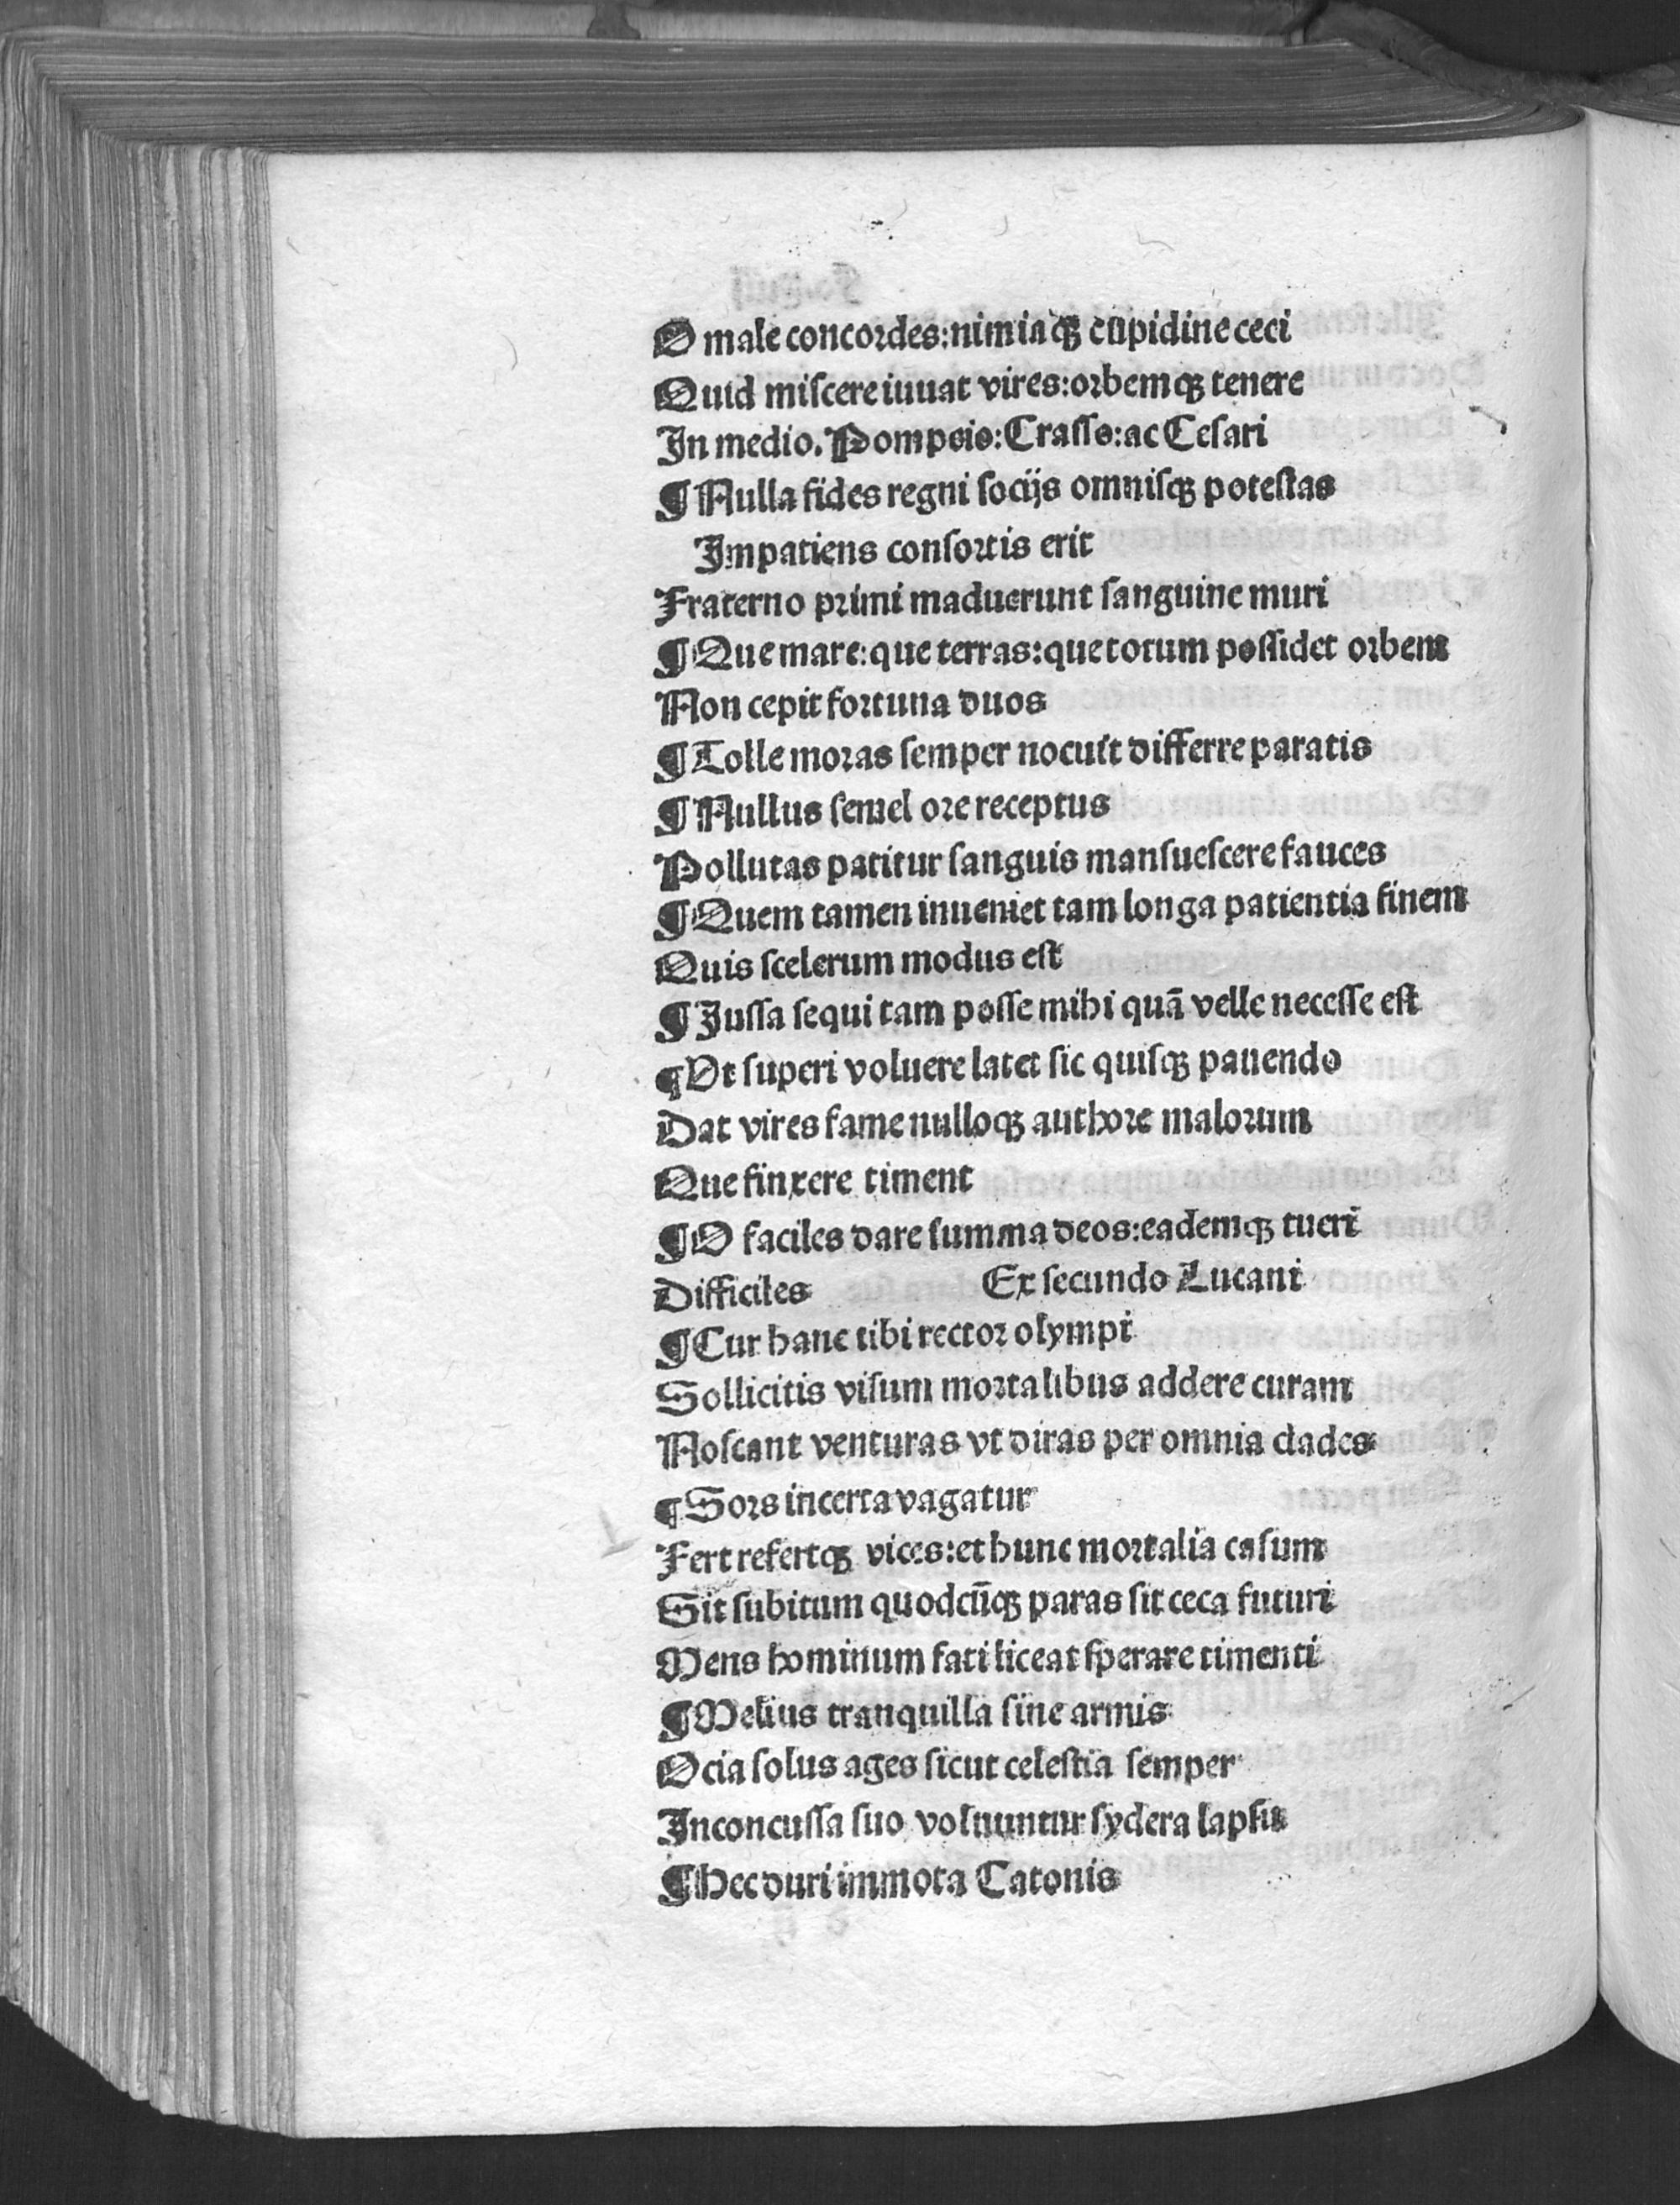 O male concordes:nimiaqꝫ cupidine ceci
Quid miſcere iuuat vires:orbemqꝫ tenere
In medio. Pompeio:Craſſo:ac Ceſari
¶ Nulla fides regni ſocijs omniſqꝫ poteſtas
Impatiens conſortis erit
Fraterno primi maduerunt ſanguine muri
¶ Que mare:que terras:que totum poſſidet orbem
Non cepit fortuna duos
¶ Tolle moras ſemper nocuit differre paratis
¶ Nullus ſemel ore receptus
Pollutas patitur ſanguis manſueſcere fauces
¶ Quem tamen inueniet tam longa patientia finem
Quis ſcelerum modus eſt
¶ Juſſa ſequi tam poſſe mihi quā velle neceſſe eſt
¶ Vt ſuperi voluere latet ſic quiſqꝫ pauendo
Dat vires fame nulloqꝫ authore malorum
Que finxere timent
¶ O faciles dare ſumma deos:eademqꝫ tueri
Difficiles Ex ſecundo Lucani
¶ Cur hanc tibi rector olympi
Sollicitis viſum mortalibus addere curam
Noſcant venturas vt diras per omnia clades
¶ Sors incerta vagatur
Fert refertqꝫ vices:et hunc mortalia caſum
Sit ſubitum quodcūqꝫ paras ſit ceca futuri
Mens hominum fati liceat ſperare timenti
¶ Melius tranquilla ſine armis
Ocia ſolus ages ſicut celeſtia ſemper
Inconcuſſa ſuo voluuntur ſydera lapſu
¶ Hec duri immota Catonis